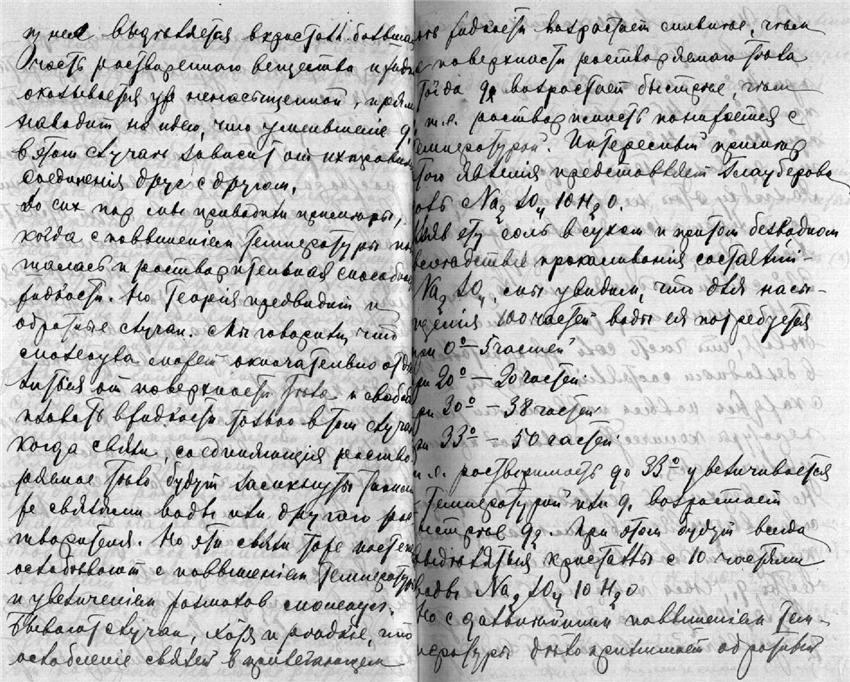 из нея выделяется в кристаллъ больша
Часть раствореннаго вещества и жид
оказывается уже ненасыщенной, прям
наводит на идею, что уменьшение q,
в этом случае зависит от их
соединения друг с другом.
До сих пор мы приводили примеры,
когда с повышением температуры по
жалась и растворительная способн
жидкости. Но теория предвидит и
обратные случаи. Мы говорили, что
молекула может окончательно отд
литься от поверхности тела и свобод
плавать в жидкости только в том случа
когда связи, соединяющия раство
ряемое тело будут засикнуты таким
же связями воды или другого рас
творителя. Но эти связи тоже посте
ослабевают с повышением температуры
и увеличением размахов молекул.
Бывают случаи, хотя и редкие, что
ослабление связей в прилегающем
жидкости возрастает сильнее, чем
поверхности растворяемого тела
тогда q₂ возрастает быстрее, чем
т.е. растворимость понижается с
температурой. Интересный пример
того явления представляет Глауберова
соль Na₂SO₄ 10H₂O.
Взяв эту соль в сухом и притом безводном
вследствие прокаливания состоянии –
Na₂SO₄, мы увидим, что для насы–
щения 100 частей воды ея потребуется
при 0° – 5 частей
при 20° – 20 частей.
при 30° – 38 частей.
при 33° – 50 частей.
т.е. растворимость до 33° увеличивается
температурой или q, возрастает
быстрее q₂. При этом будут всегда
выделяться кристаллы с 10 частями
воды Na₂SO₄ 10H₂O
Но с дальнейшим повышением тем–
пературы дело принимает обратный